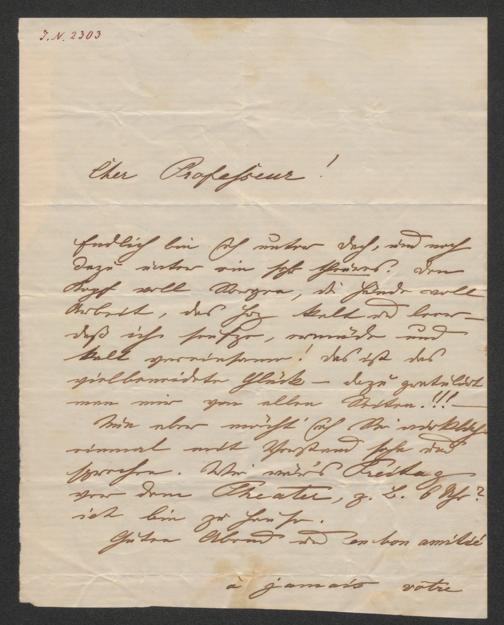 J. N. 2303
Cher Professeur!
Endlich bin ich unter Dach, und noch
dazu unter ein sehr theures. Den
Kopf voll Sorgen, die Hände voll
Arbeit, das Herz kalt und leer –
daß ich seufze, ermüde und
kalt vereinsame! Das ist das
vielbeneidete Glück – dazu gratulirt
man mir von allen Seiten!!! –
Nun aber möcht' ich Sie wirklich
einmal mit Verstand sehn und
sprechen. Wie wär's Freitag
vor dem Theater, z. B. 6 Uhr?
ich bin zu Hause.
Guten Abend und en bon amitié
à jamais votre